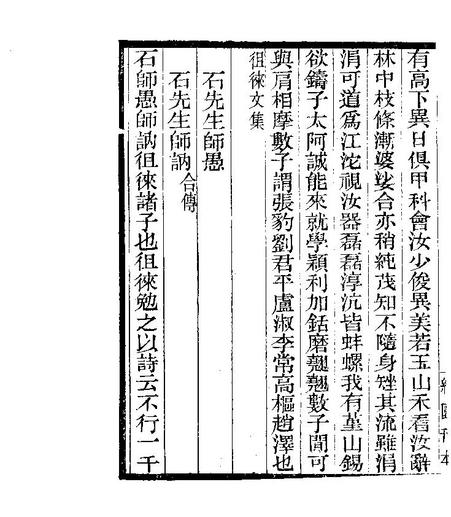 有高下異日俱甲科會汝少俊異美若玉山禾看汝辭
林中枝條漸婆娑合亦稍純茂知不隨身矬其流雖涓
涓可道為江沱視汝器磊磊淳沆皆蚌螺我有堇山錫
欲鑄子太阿誠能來就學穎利加銛磨翹翹數子間可
與肩相摩數子謂張豹劉君平盧淑李常高樞趙澤也
徂徠文集
石先生師愚
石先生師訥合傳
石師愚師訥徂徠諸子也徂徠勉之以詩云不行一千